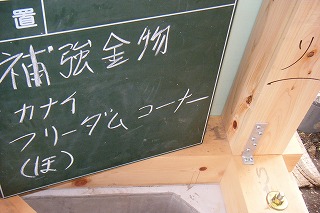 置
補強金物
カナイ
フリーダムコーナー
(ほ)
り